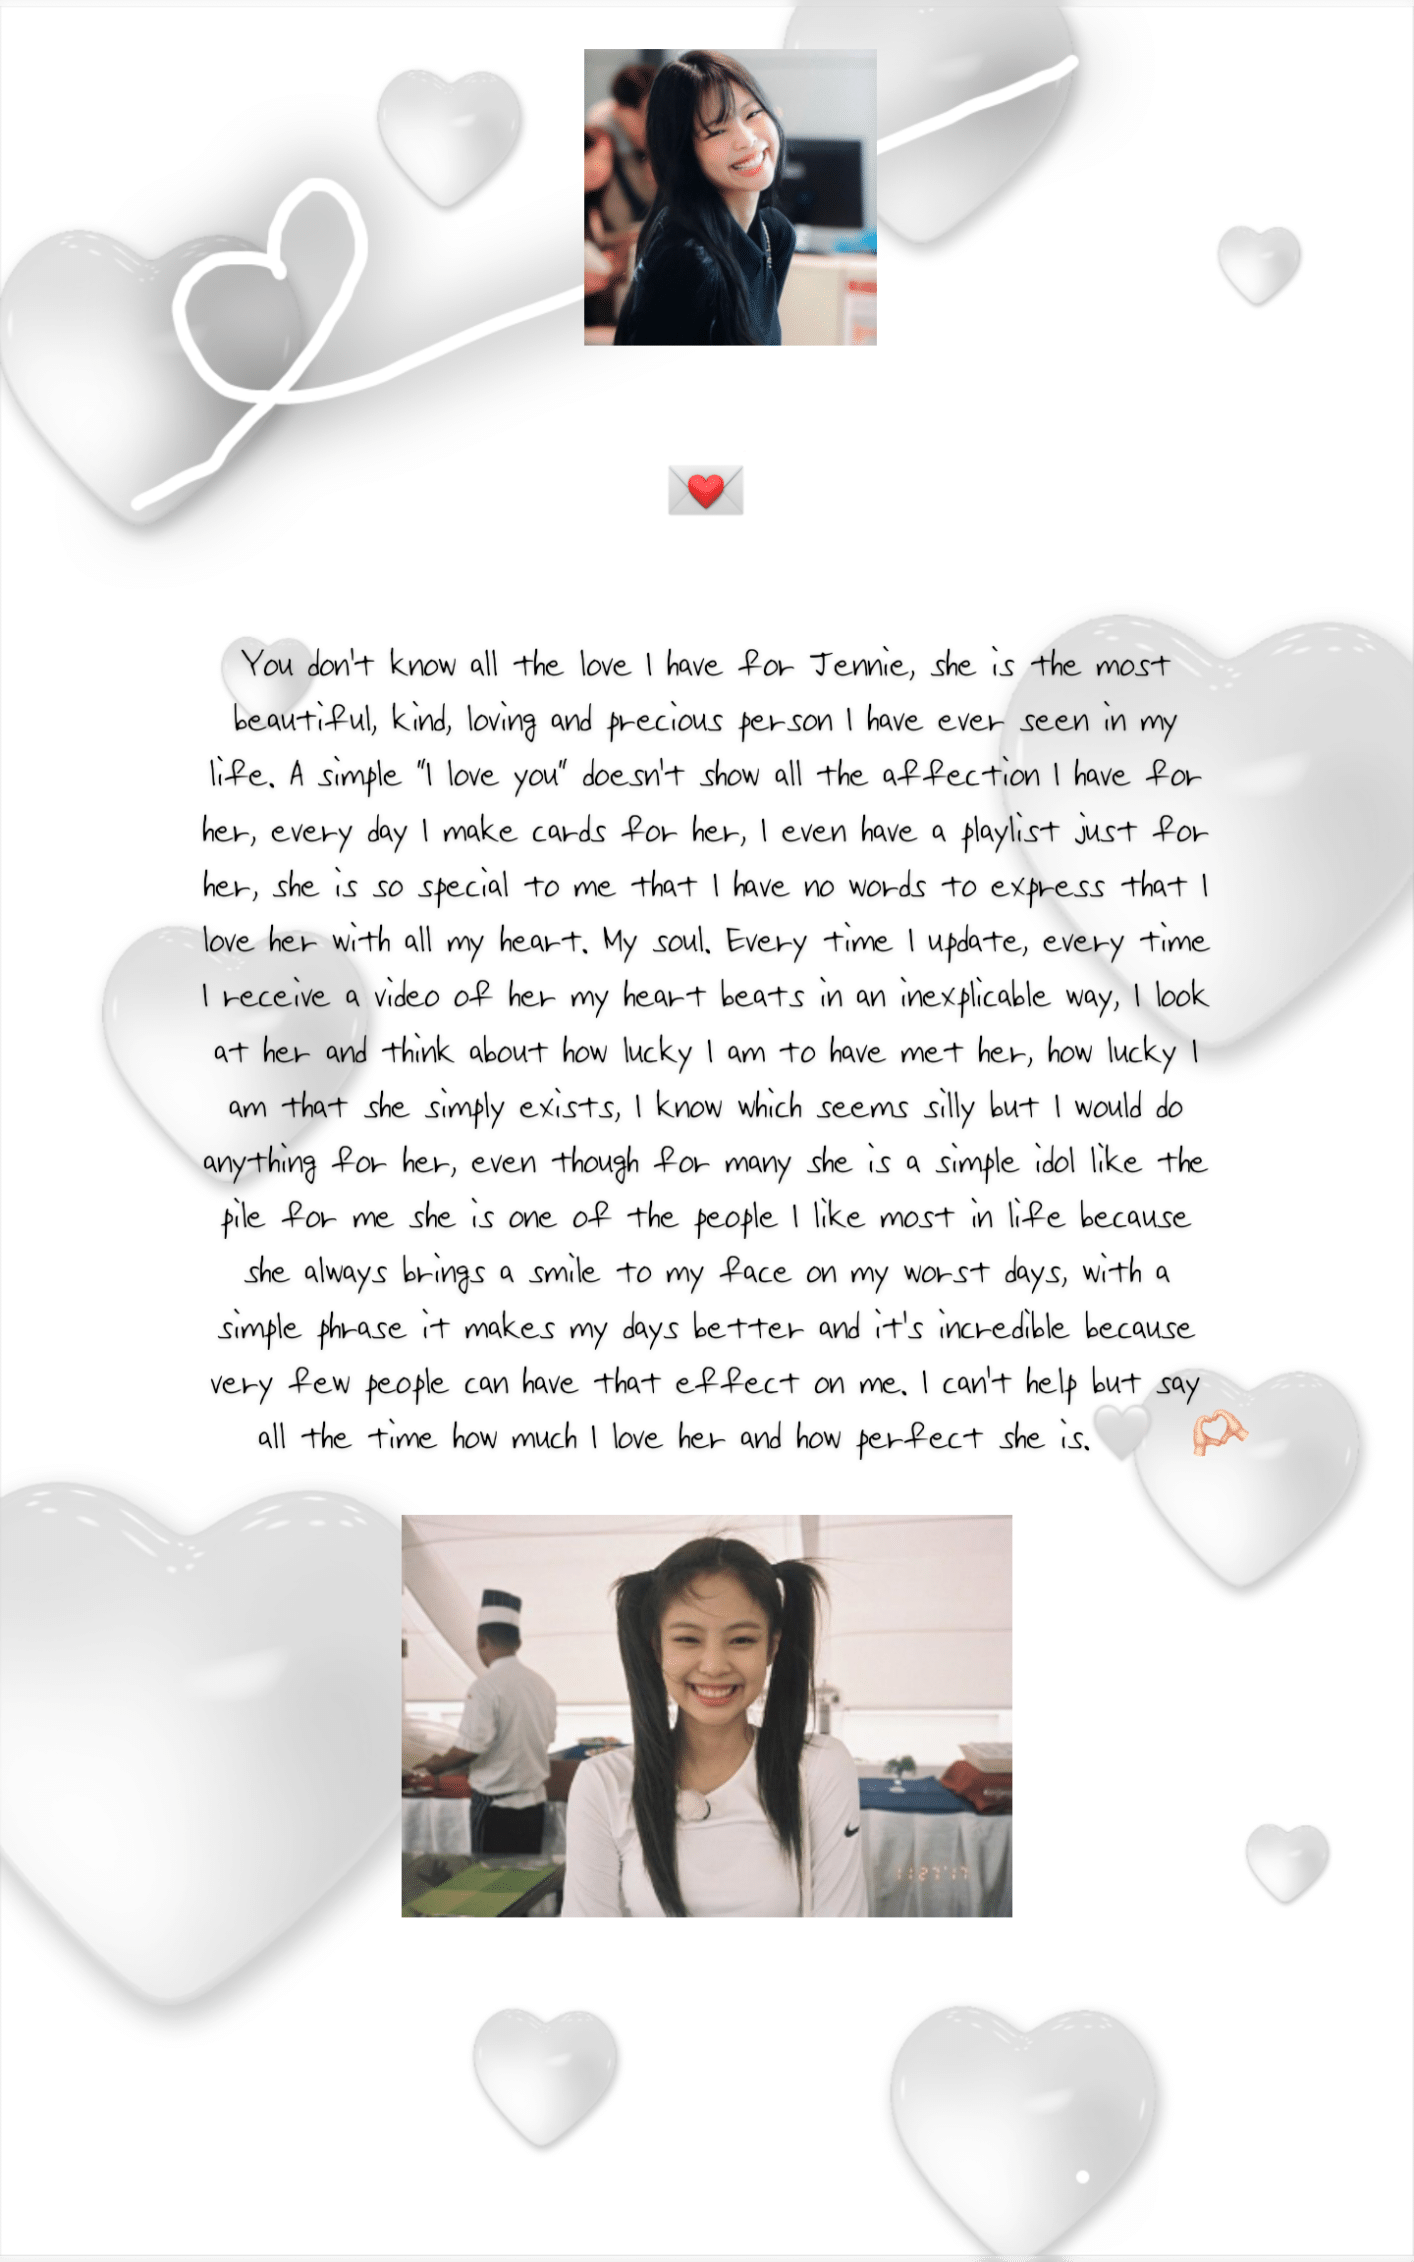 You don't know all the love I have for Jennie, she is the most
beautiful, kind, loving and precious person I have ever seen in my
life. A simple "I love you" doesn't show all the affection I have for
her, every day I make cards for her, I even have a playlist just for
her, she is so special to me that I have no words to express that I
love her with all my heart. My soul. Every time I update, every time
I receive a video of her my heart beats in an inexplicable way, I look
at her and think about how lucky I am to have met her, how lucky I
am that she simply exists, I know which seems silly but I would do
anything for her, even though for many she is a simple idol like the
pile for me she is one of the people I like most in life because
she always brings a smile to my face on my worst days, with a
simple phrase it makes my days better and it's incredible because
very few people can have that effect on me. I can't help but say
all the time how much I love her and how perfect she is.🤍 🫶🏻